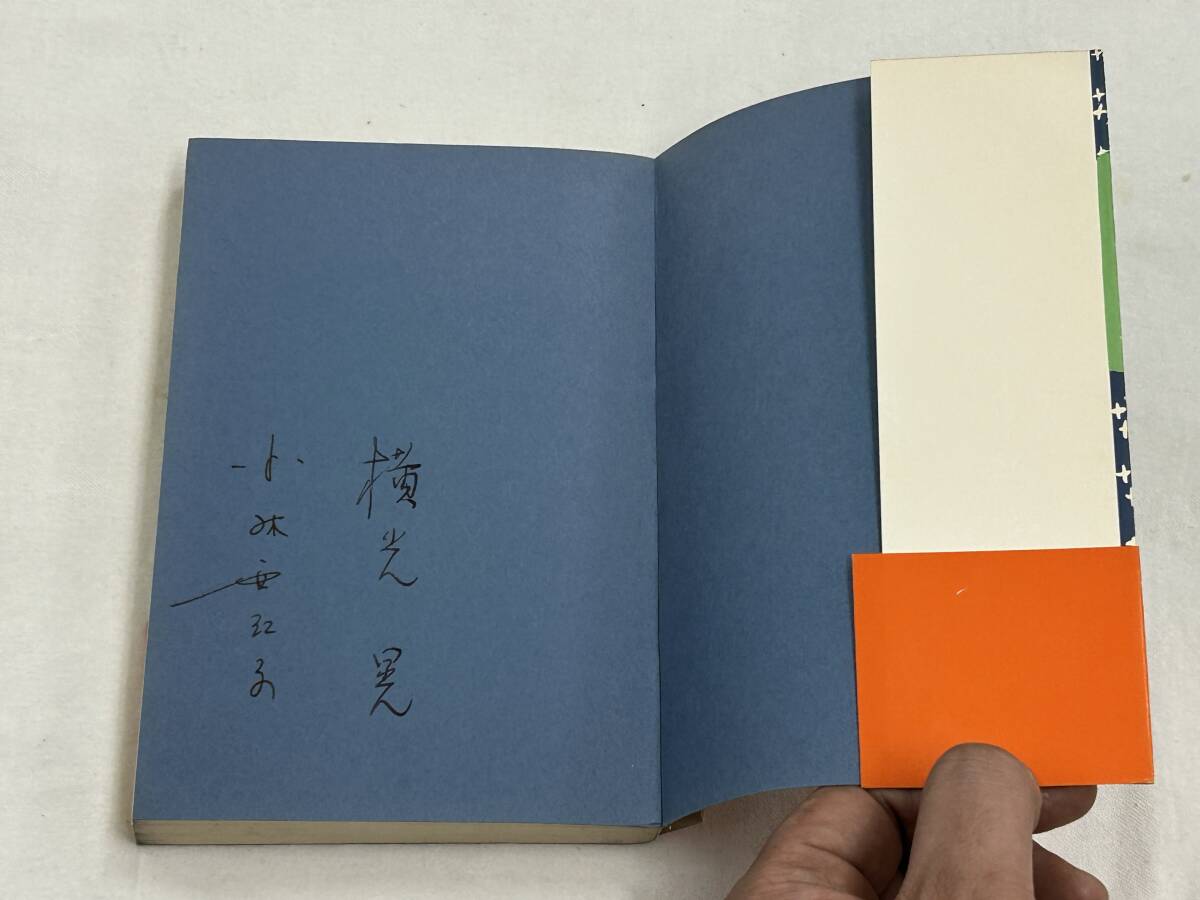 横光 晃
小林亜紀子